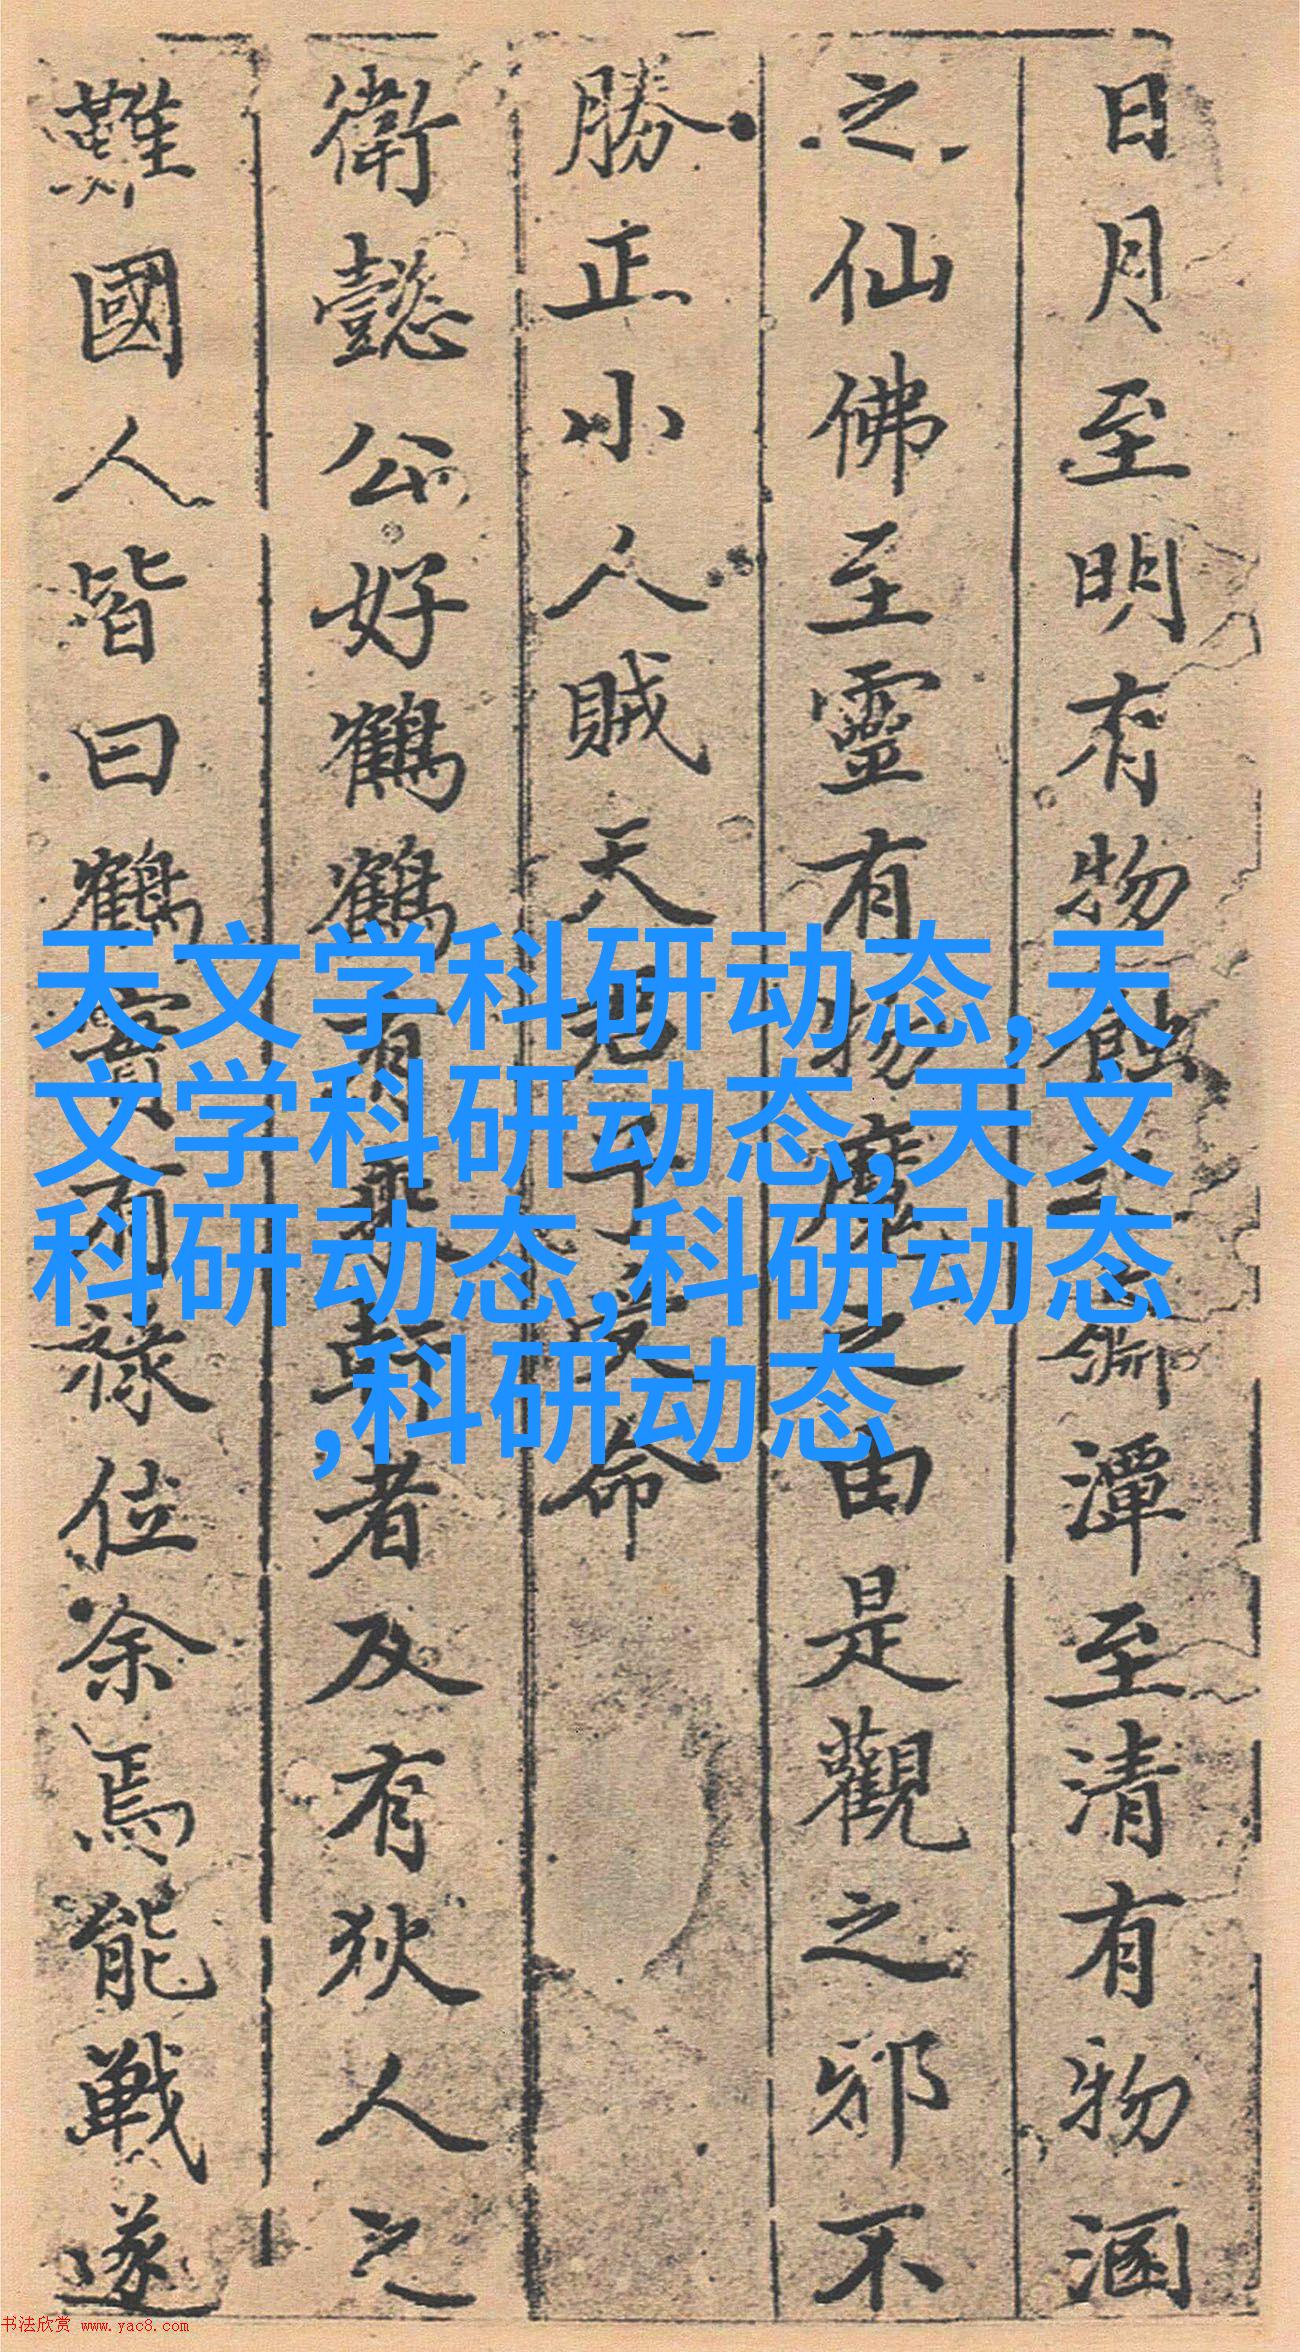 日月至明有物蝕之瀞潭至清有物涵
之仙佛至靈有物魔之由是觀之邪不
勝正小人賊天君子受命
衛懿公好鶴鶴有乗軒者及有狄人之
難國人皆曰鶴實有祿位余焉能戰遂
天文学科研动态,天
文学科研动态,天文
科研动态,科研动态
,科研动态
书法欣赏 www.yac8.com